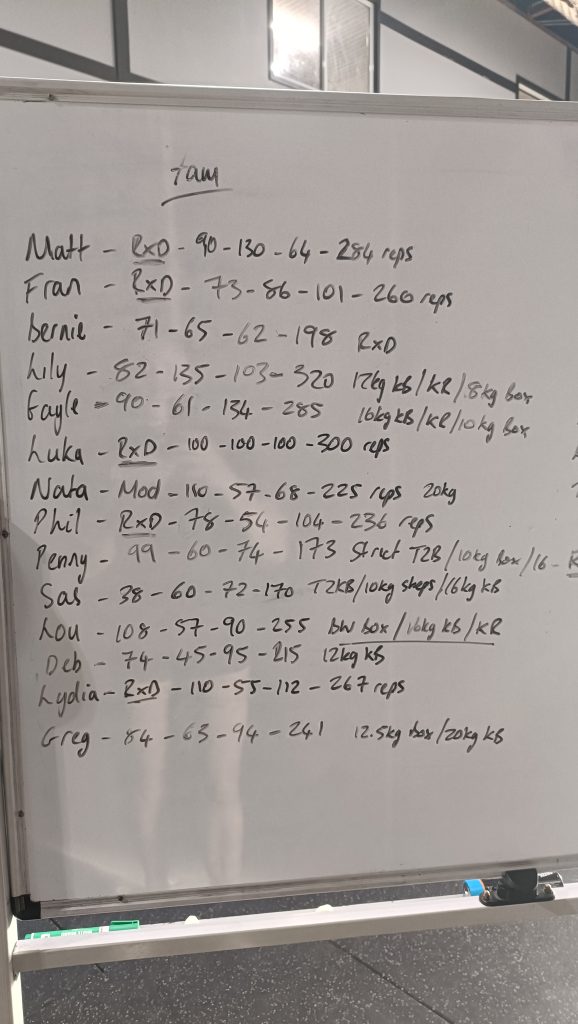 7am
Matt - RxD - 90 - 130 - 64 - 284 reps
Fran - RxD - 73 - 86 - 101 - 260 reps
Bernie - 71 - 65 - 62 - 198 RxD
Lily - 82 - 135 - 103 - 320 12kg kB/KR/8kg Box
Gayle - 90 - 61 - 134 - 285 16kg kB/KR/10kg Box
Luka - RxD - 100 - 100 - 100 - 300 reps
Nata - Mod - 110 - 57 - 68 - 225 reps 20kg
Phil - RxD - 78 - 54 - 104 - 236 reps
Penny - 99 - 60 - 74 - 173 Strict T2B/10kg Box/16 -
Sas - 38 - 60 - 72 - 170 T2KB/10kg steps/16kg kB
Lou - 108 - 57 - 90 - 255 BW Box/16kg kB/KR
Deb - 74 - 45 - 95 - 215 12kg kB
Lydia - RxD - 110 - 55 - 112 - 267 reps
Greg - 84 - 63 - 94 - 241 12.5kg box/20kg kB